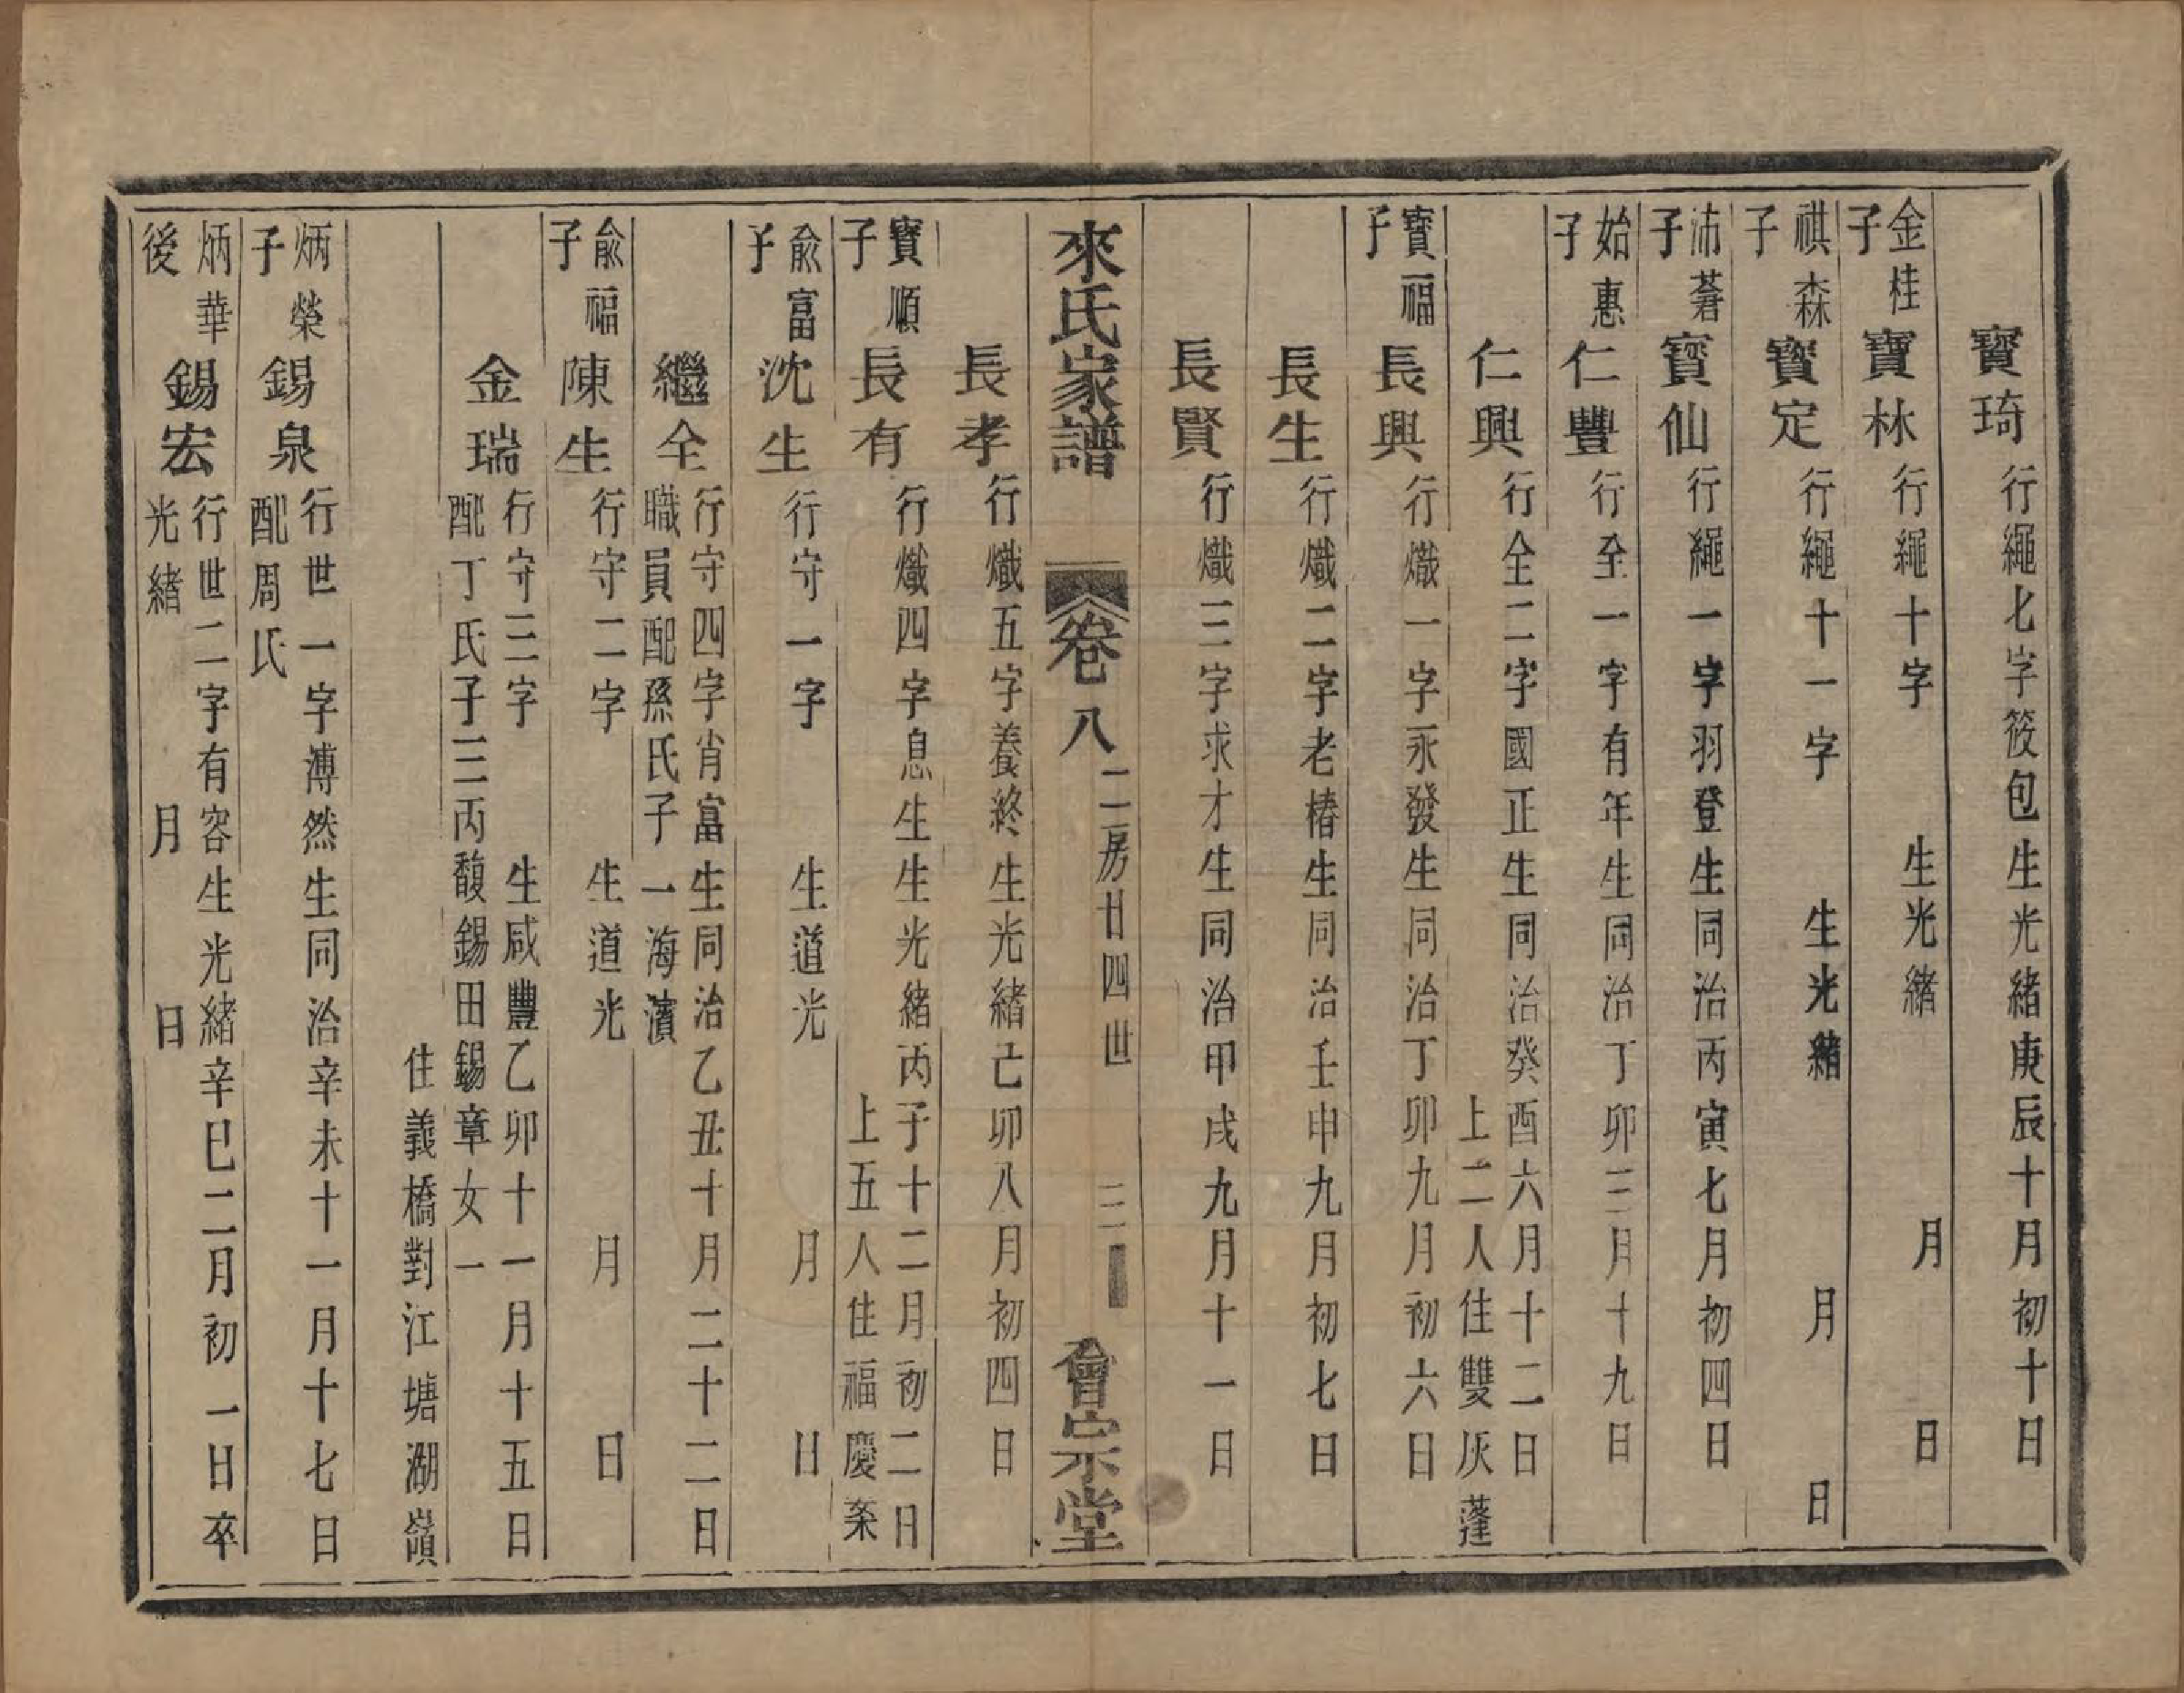 寶琦 行繩七字筱包生光緒庚辰十月初十日
金桂子 寶林 行繩十字 生光緒 月 日
祺森子 寶定 行繩十一字 生光緒 月 日
沛蓍子 寶仙 行繩一字羽登生同治丙寅七月初四日
始惠子 仁豐 行至一字有年生同治丁卯三月十九日
仁興 行全二字國正生同治癸酉六月十二日
上二人住雙灰蓬
寶福子 長興 行熾一字永發生同治丁卯九月初六日
長生 行熾二字老椿生同治壬申九月初七日
長賢 行熾三字求才生同治甲戌九月十一日
來氏家譜 卷八 二房廿四世 三 會宗堂
長孝 行熾五字養終生光緒己卯八月初四日
寶順子 長有 行熾四字息生生光緒丙子十二月初二日
上五人住福慶桼
俞富子 沈生 行守一字 生道光 月 日
繼全 行守四字肖富生同治乙丑十月二十二日
職員配孫氏子一海濱
俞福子 陳生 行守二字 生道光 月 日
金瑞 行守三字 生咸豐乙卯十一月十五日
配丁氏子三丙馥錫田錫章女一
住義橋對江塘湖嶺
炳榮子 錫泉 行世一字溥然生同治辛未十一月十七日
配周氏
炳華後 錫宏 行世二字有容生光緒辛巳二月初一日卒
光緒 月 日